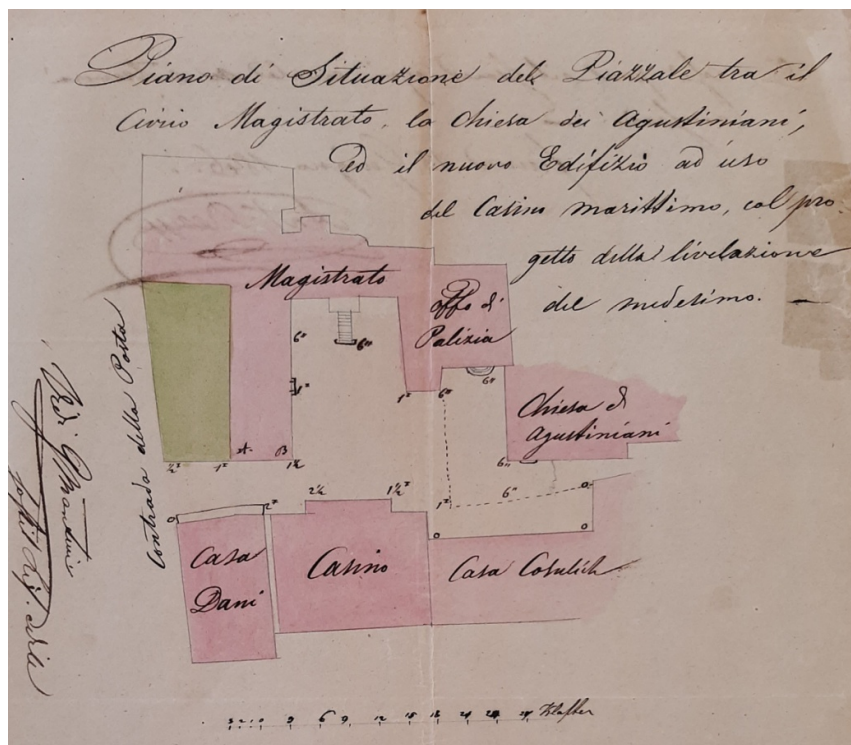 Piano di Situazione del Piazzale tra il
Civico Magistrato, la Chiesa dei Agustiniani,
Ed il nuovo Edifizio ad uso
del Casino marittimo, col pro-
getto della livelazione
del medesimo. —
Magistrato
Offo di
Polizia
Chiesa d
Agustiniani
Contrada della Posta
Casa
Dani
Casino
Casa Cosulich
A.
B
6"
6"
1"
1½
½"
1"
2"
2½
1½"
1"
6"
6"
6"
1"
6"
0
0
0
0
0
3 6 9 12 15 18 21 24 27 Klafter